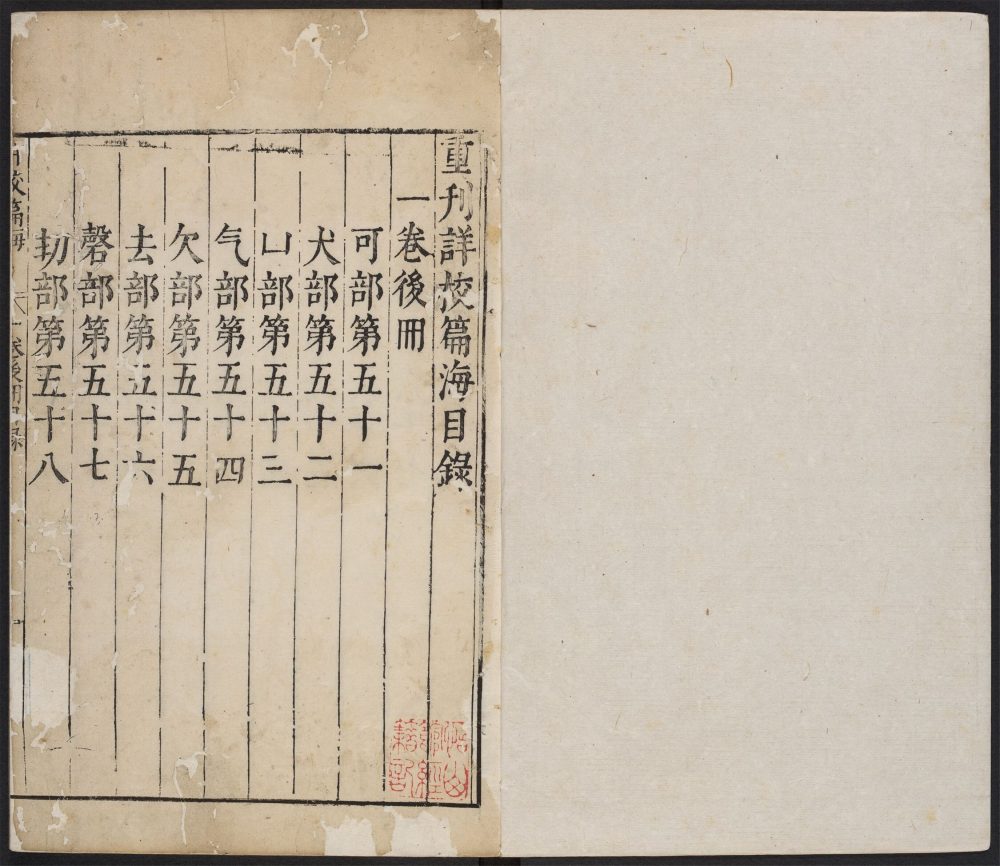 重刊詳校篇海目錄
一卷後冊
可部第五十一
犬部第五十二
凵部第五十三
气部第五十四
欠部第五十五
去部第五十六
磬部第五十七
㓞部第五十八
校篇海
卷後